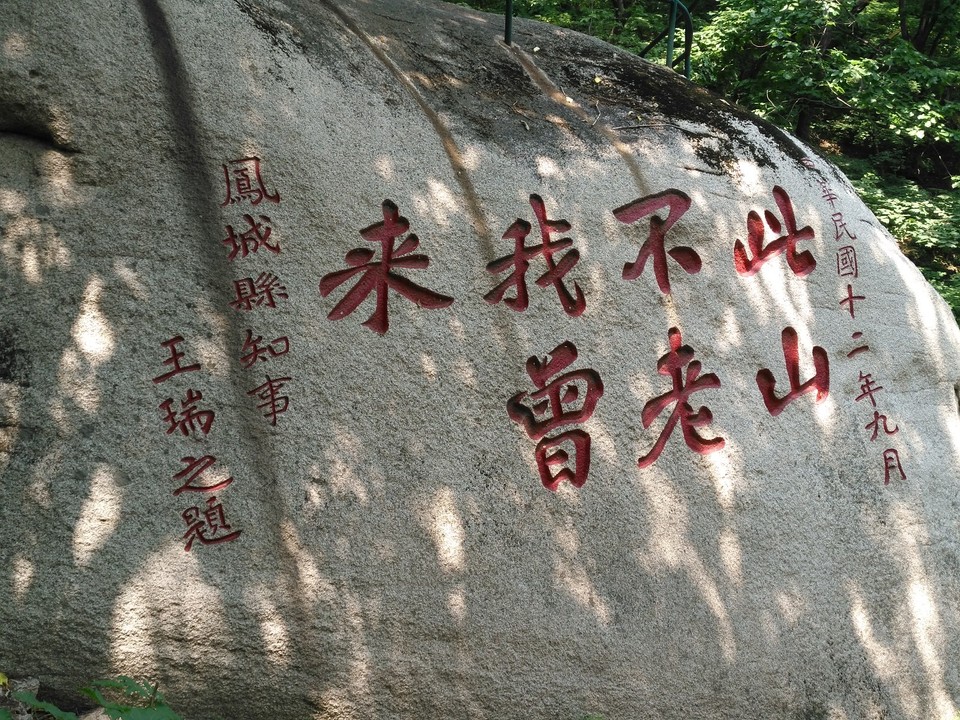 中華民國十二年九月
此山
不老
我曾
来
鳳城縣知事
王瑞之題